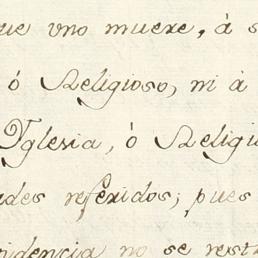 ue uno muere, á s
ó Religioso, ni á
Yglesia, ó Religi
ades referidos; pues
sidencia no se resta